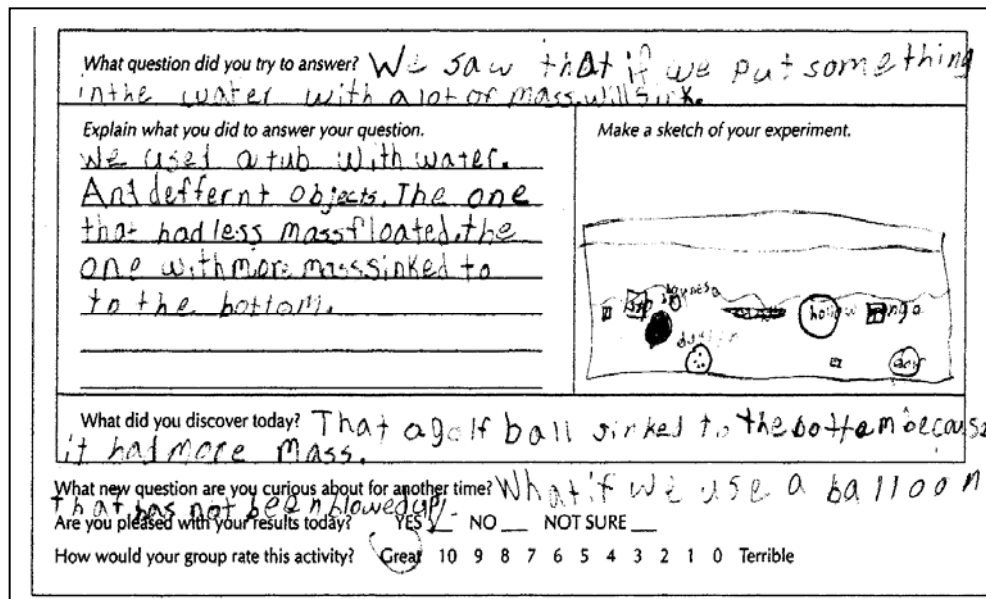 What question did you try to answer? We saw that if we put something
in the water with a lot of mass will sink.
Explain what you did to answer your question.
We used a tub with water.
And deffernt objects. The one
that had less mass floated. the
one with more mass sinked to
to the bottom.
Make a sketch of your experiment.
hollow
What did you discover today? That a golf ball sinked to the bottom because
it had more mass.
What new question are you curious about for another time? What if we use a balloon
that has not been blowed up.
Are you pleased with your results today? YES ✓ NO __ NOT SURE __
How would your group rate this activity? Great 10 9 8 7 6 5 4 3 2 1 0 Terrible